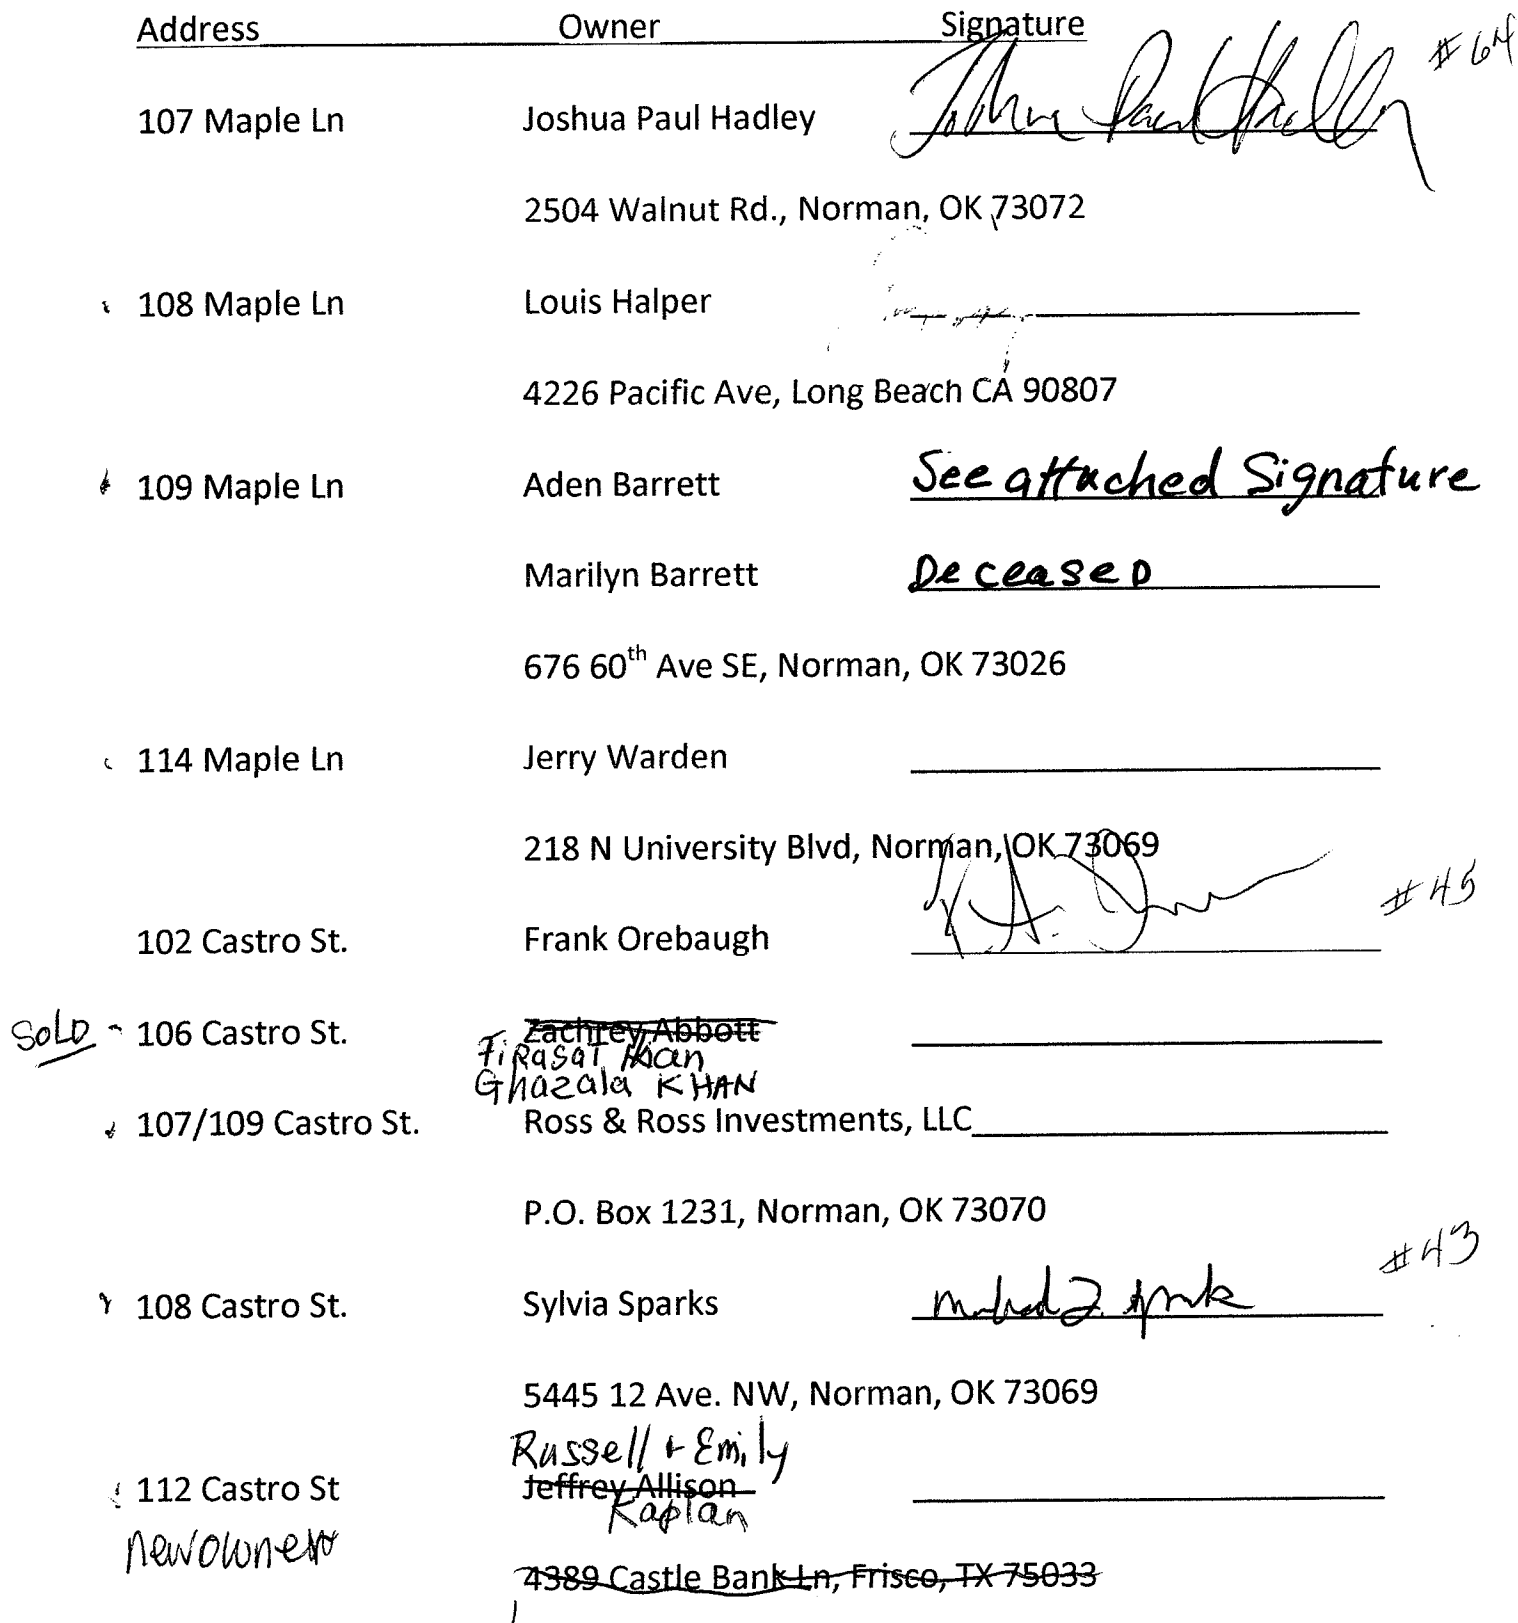 Address Owner Signature
#64
107 Maple Ln Joshua Paul Hadley Joshua Paul Hadley
2504 Walnut Rd., Norman, OK 73072
108 Maple Ln Louis Halper
4226 Pacific Ave, Long Beach CA 90807
109 Maple Ln Aden Barrett See attached Signature
Marilyn Barrett Deceased
676 60th Ave SE, Norman, OK 73026
114 Maple Ln Jerry Warden
218 N University Blvd, Norman, OK 73069
#45
102 Castro St. Frank Orebaugh
SOLD 106 Castro St. Zachrey Abbott
Firasat Khan
Ghazala KHAN
107/109 Castro St. Ross & Ross Investments, LLC
P.O. Box 1231, Norman, OK 73070
#43
108 Castro St. Sylvia Sparks
5445 12 Ave. NW, Norman, OK 73069
Russell + Emily
112 Castro St Jeffrey Allison
Kaplan
new owner
4389 Castle Bank Ln, Frisco, TX 75033